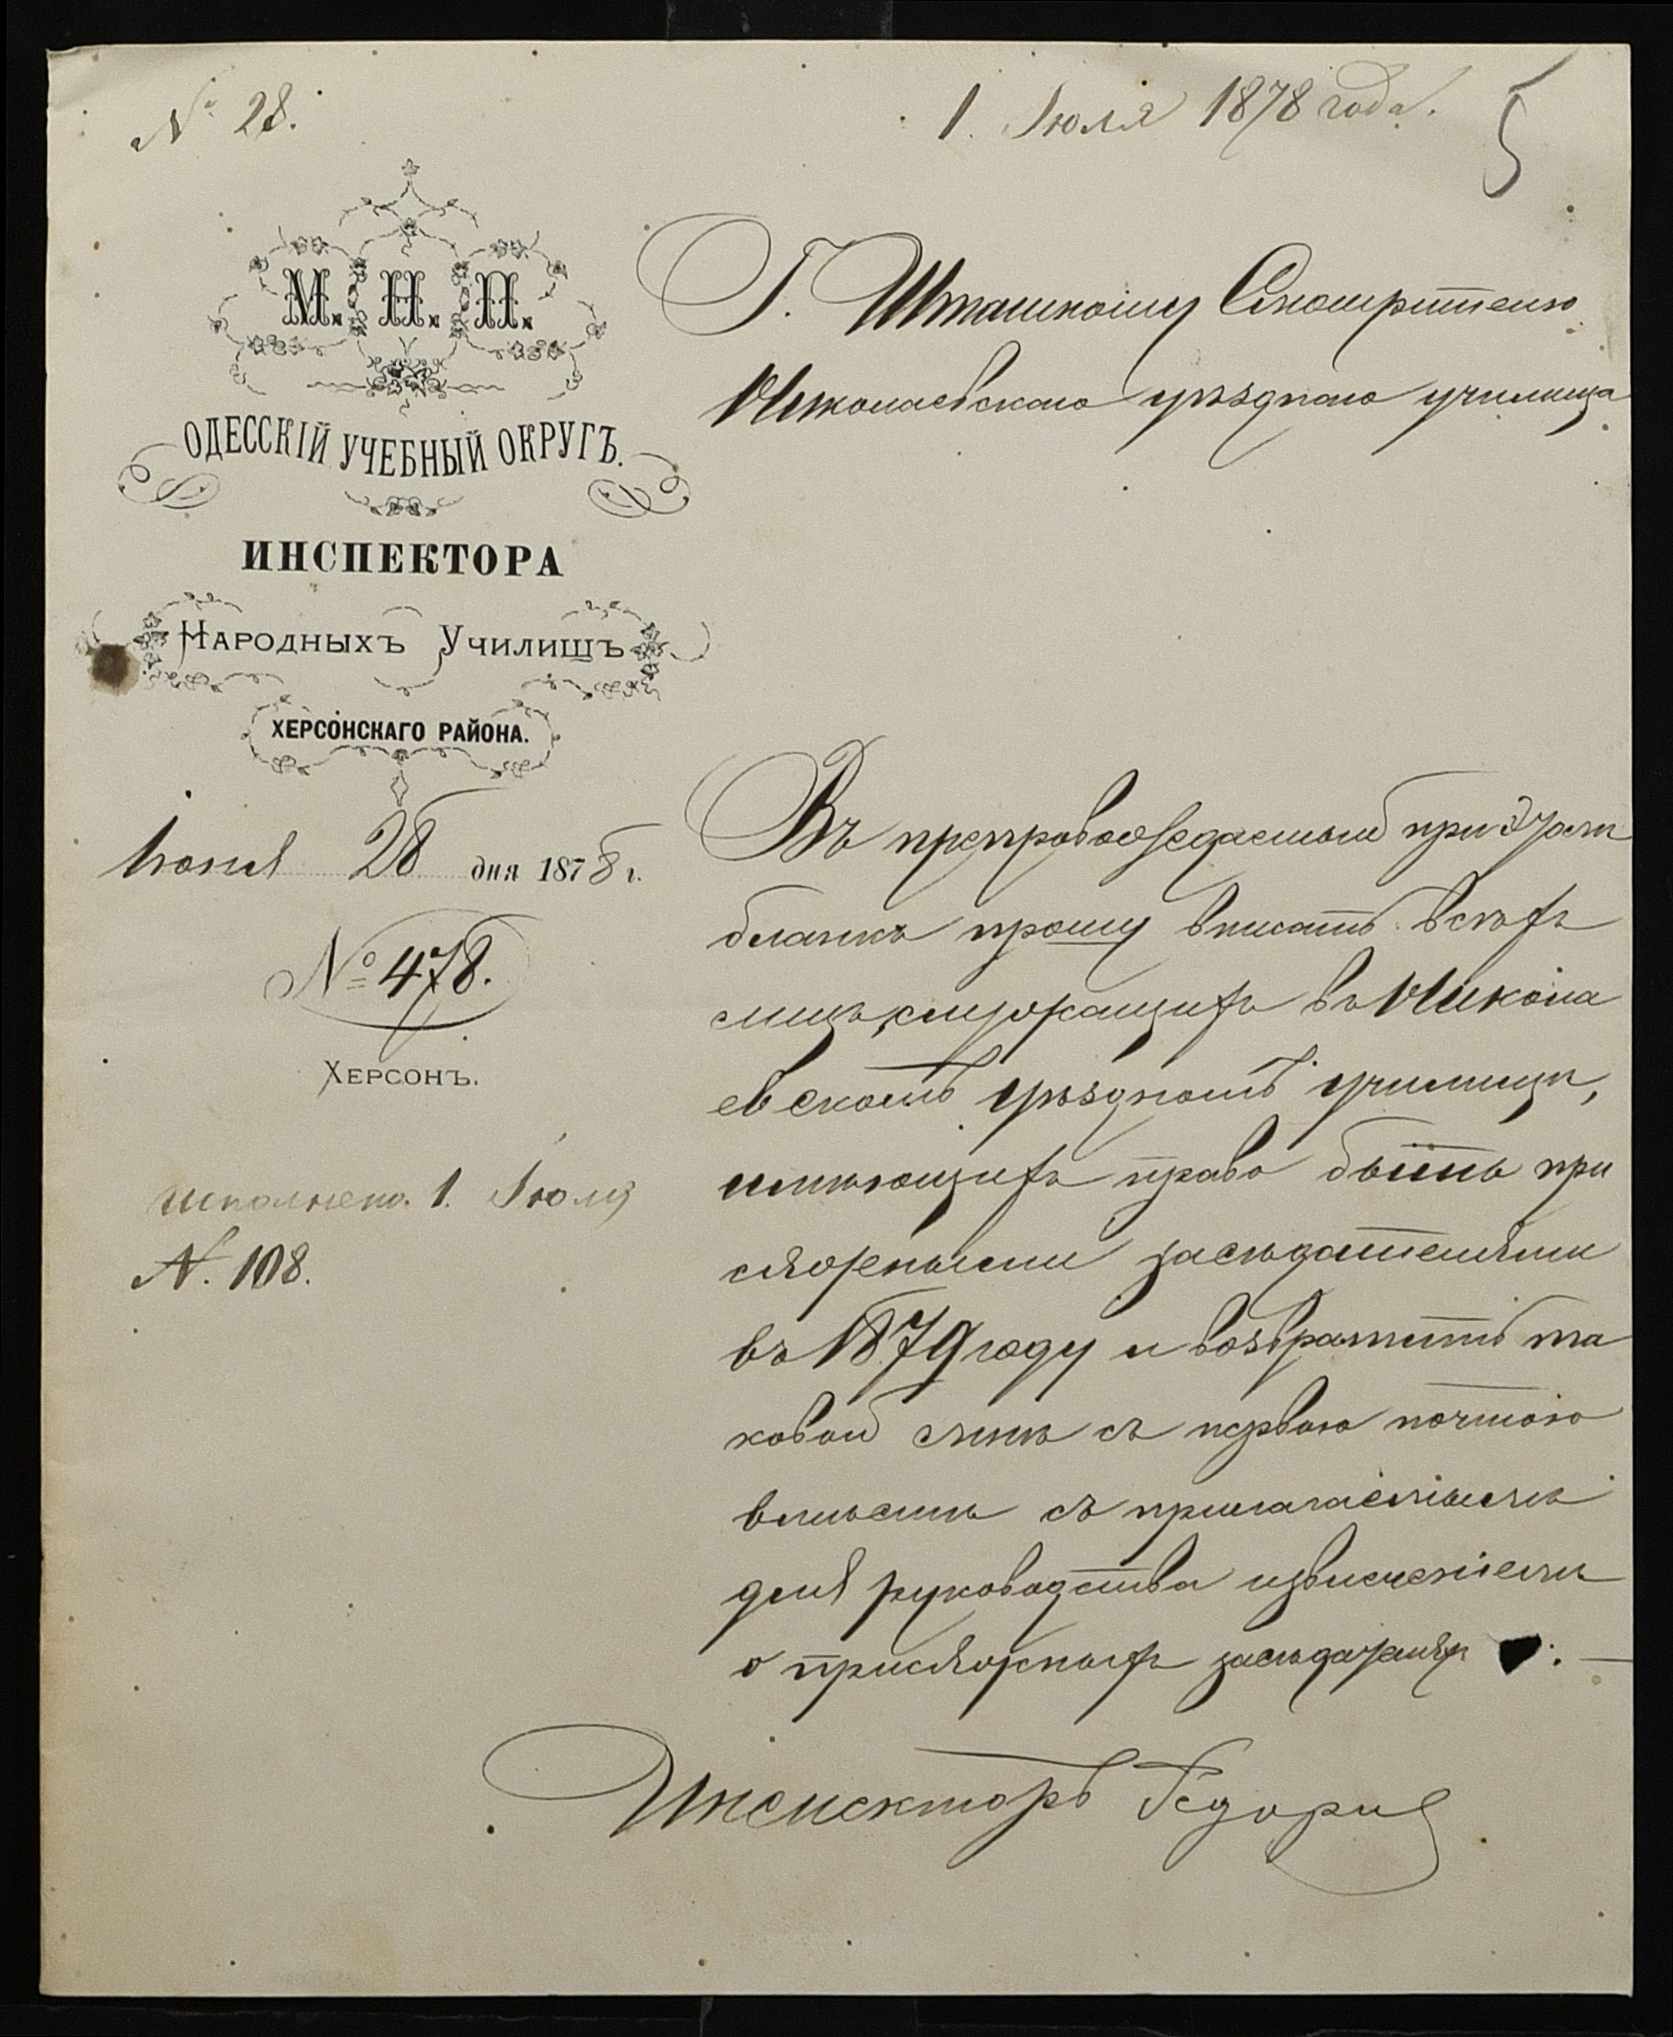 № 28.
1. Июля 1878 года.
5
М. Н. П.
ОДЕССКІЙ УЧЕБНЫЙ ОКРУГЪ.
ИНСПЕКТОРА
НАРОДНЫХЪ УЧИЛИЩЪ
ХЕРСОНСКАГО РАЙОНА.
Іюня 28 дня 1878 г.
№ 478.
ХЕРСОНЪ.
исполнено. 1. Іюля
№. 108.
Г. Штатному Смотрителю
Николаевскаго уѣзднаго училища
Въ препровождаемый при этомъ
бланкъ прошу вписать всѣхъ
лицъ, служащихъ въ Никола
евскомъ уѣздномъ училищѣ,
имѣющихъ право быть при
сяжными засѣдателями
въ 1879 году и возвратить та
ковой мнѣ съ первою почтою
вмѣстѣ съ прилагаемымъ
для руководства извлеченіемъ
о присяжныхъ засѣдателяхъ.
Инспекторъ